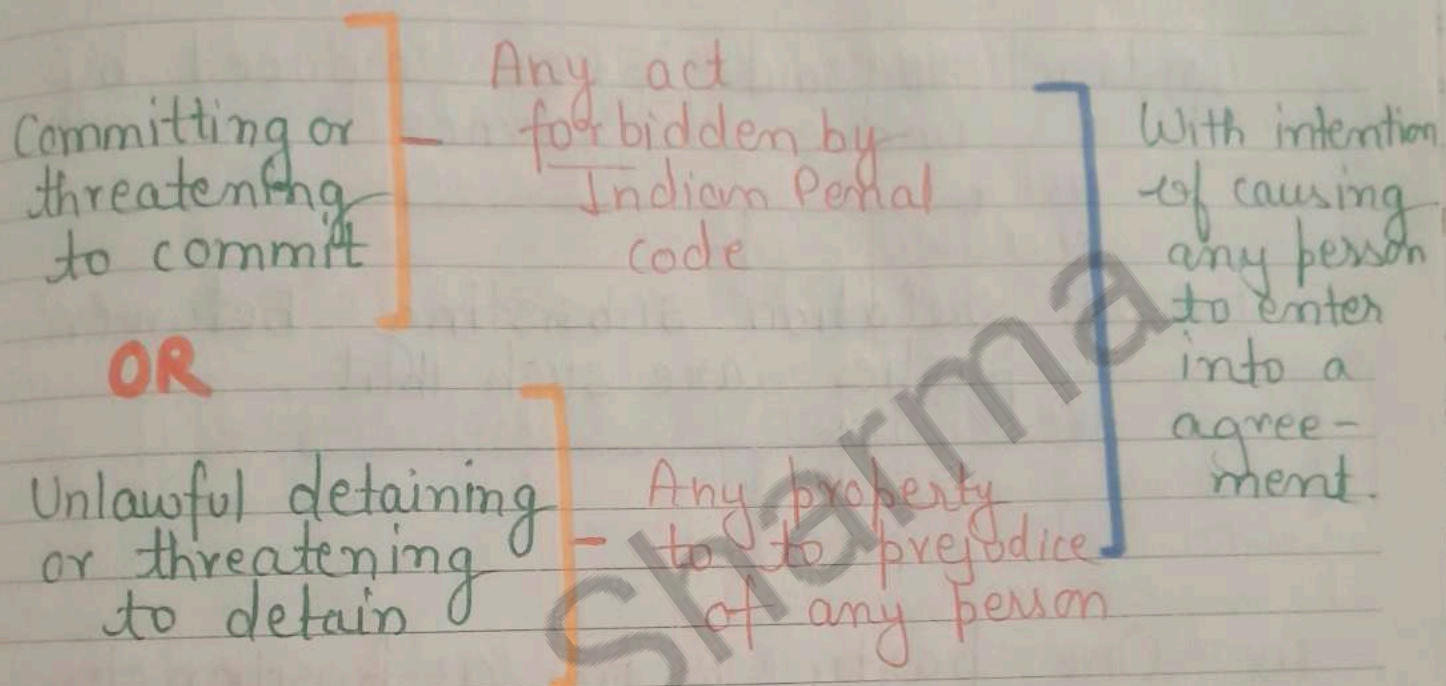 Committing or
threatening
to commit
Any act
forbidden by
Indian Penal
code
OR
Unlawful detaining
or threatening
to detain
Any property
to to prejudice
of any person
With intention
of causing
any person
to enter
into a
agree-
ment.
Sharma